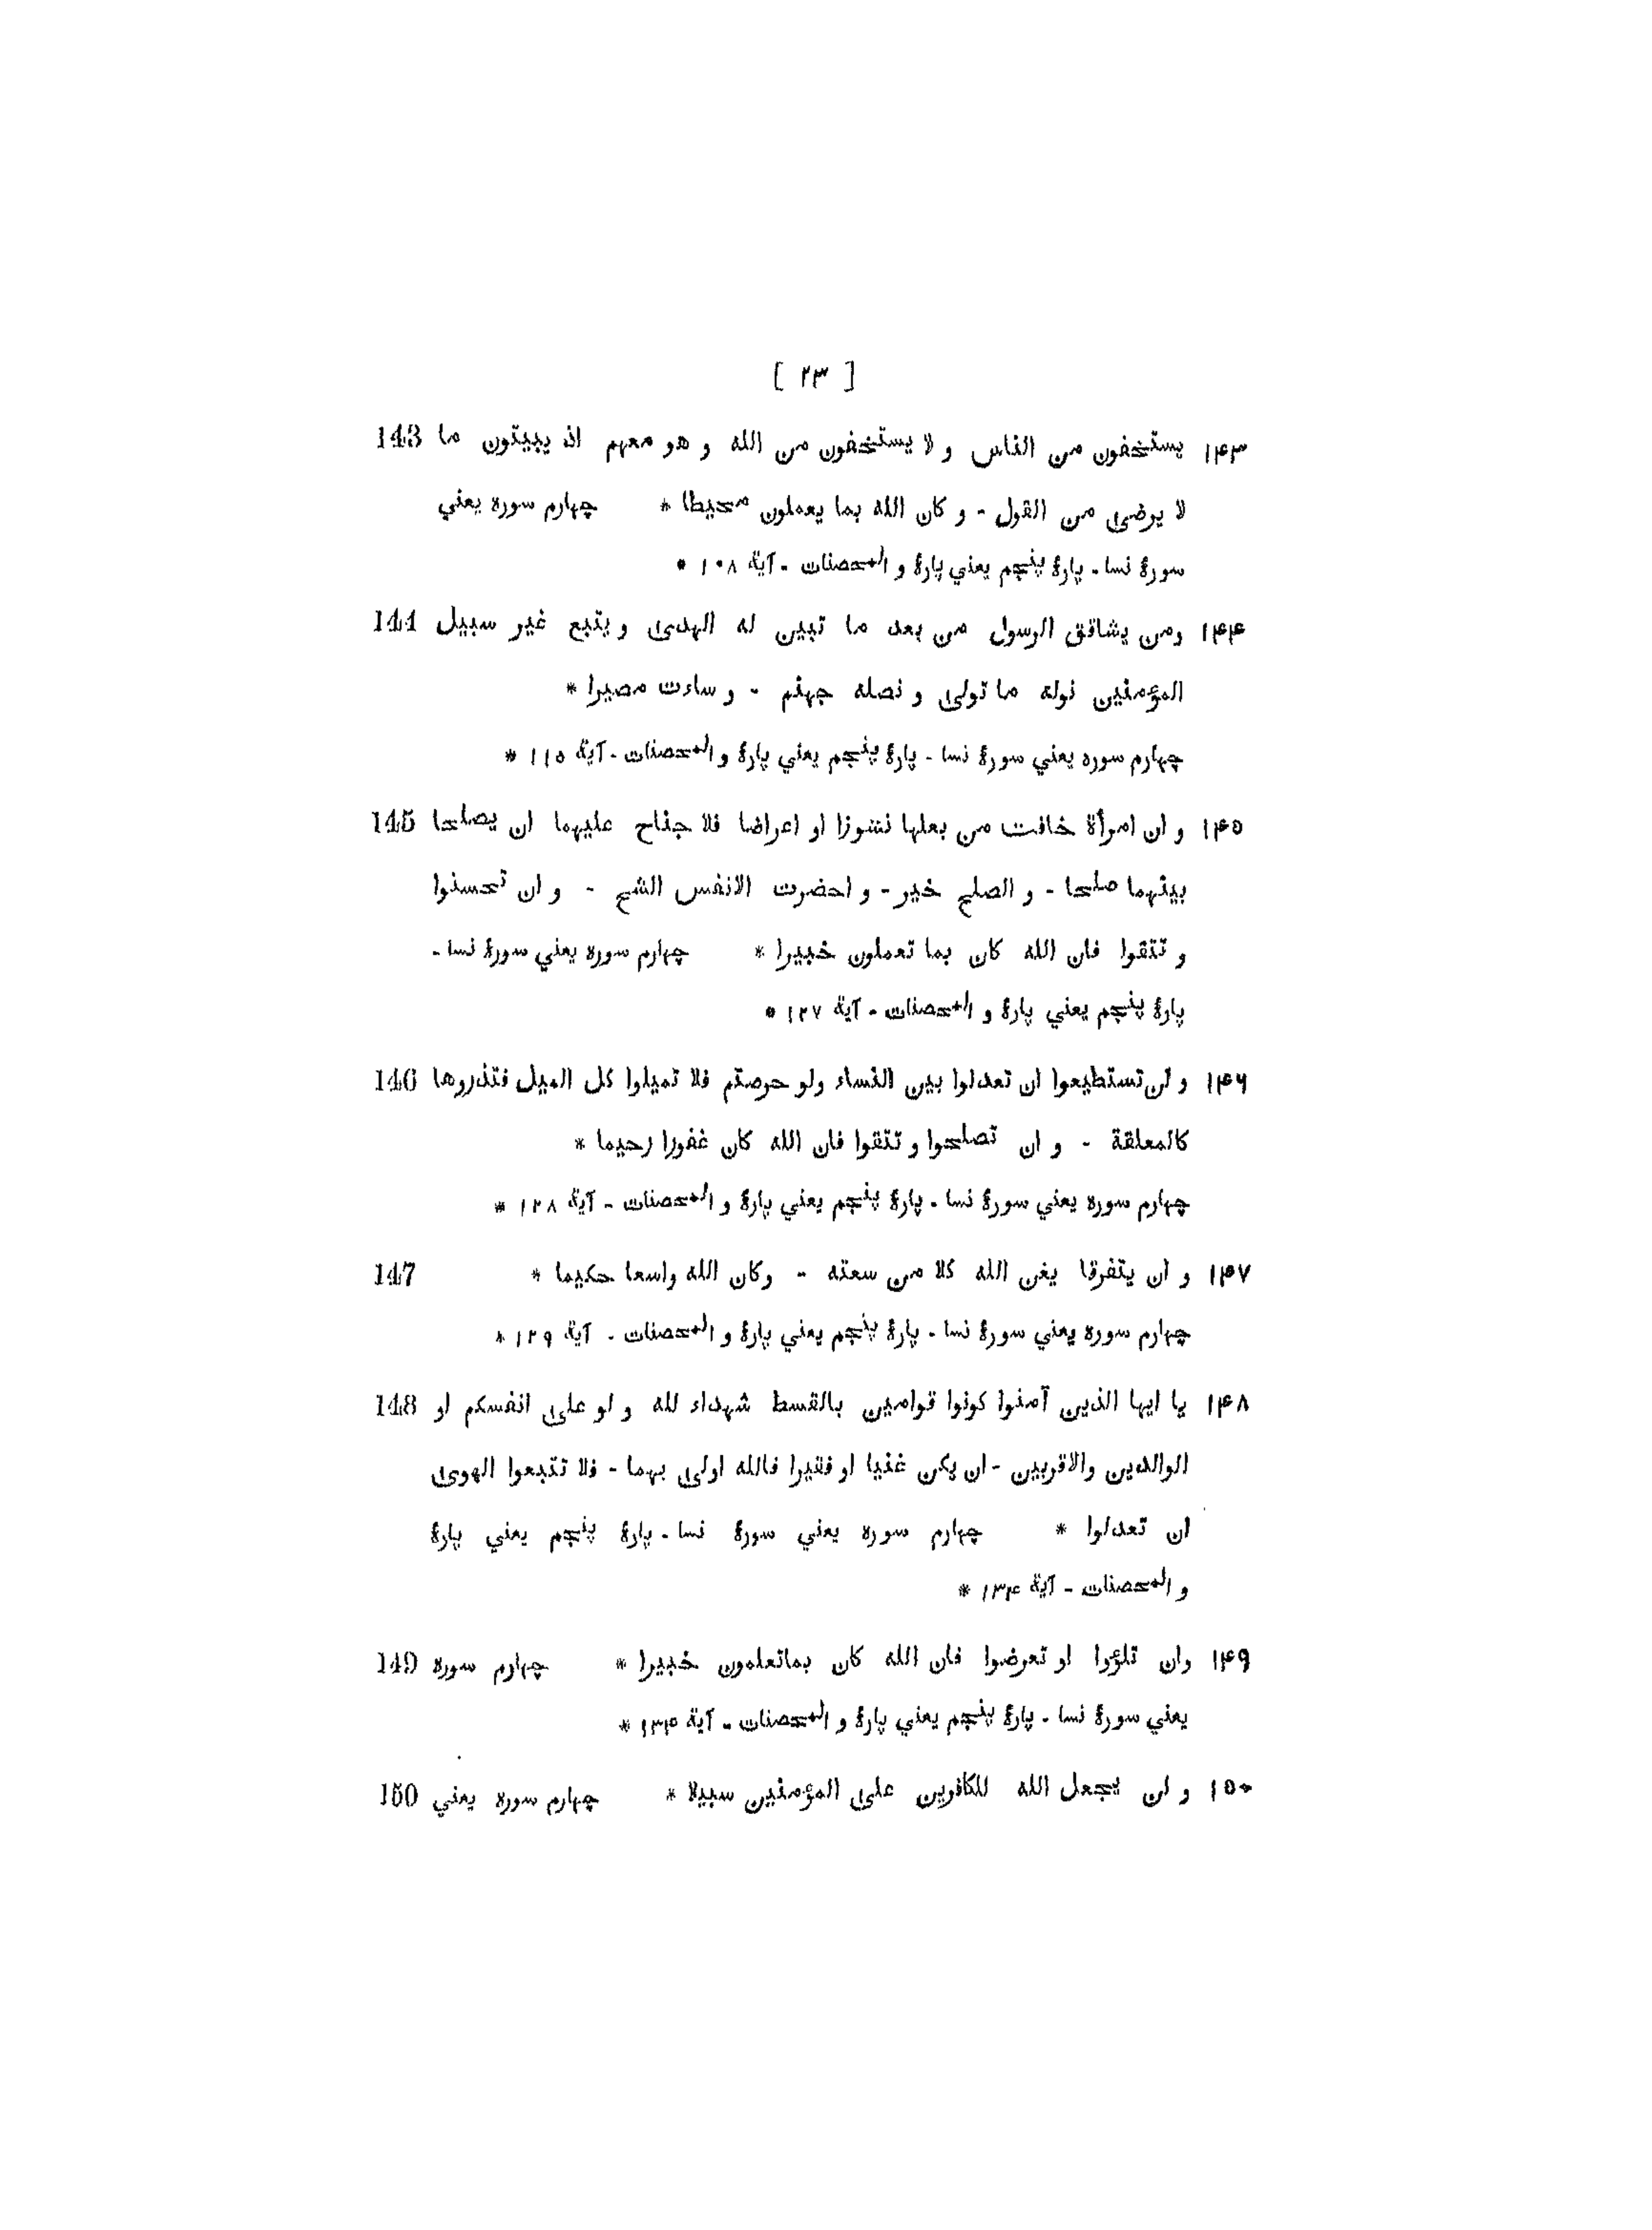 [ ۲۳ ]
۱۴۳ يستخفون من الناس و لا يستخفون من الله و هو معهم اذ يبيتون ما 143
لا يرضى من القول - و كان الله بما يعملون محيطا * چهارم سوره يعني
سورهٔ نسا - پارهٔ پنجم يعني پارهٔ و المحصنات - آية ۱۰۸ *
۱۴۴ ومن يشاقق الرسول من بعد ما تبين له الهدى و يتبع غير سبيل 144
المؤمنين نوله ما تولى و نصله جهنم - و ساءت مصيرا *
چهارم سوره يعني سورهٔ نسا - پارهٔ پنجم يعني پارهٔ و المحصنات - آية ۱۱۵ *
۱۴۵ و ان امرأة خافت من بعلها نشوزا او اعراضا فلا جناح عليهما ان يصلحا 145
بينهما صلحا - و الصلح خير - و احضرت الانفس الشح - و ان تحسنوا
و تتقوا فان الله كان بما تعملون خبيرا * چهارم سوره يعني سورهٔ نسا -
پارهٔ پنجم يعني پارهٔ و المحصنات - آية ۱۲۷ *
۱۴۶ و لن تستطيعوا ان تعدلوا بين النساء ولو حرصتم فلا تميلوا كل الميل فتذروها 146
كالمعلقة - و ان تصلحوا و تتقوا فان الله كان غفورا رحيما *
چهارم سوره يعني سورهٔ نسا - پارهٔ پنجم يعني پارهٔ و المحصنات - آية ۱۲۸ *
۱۴۷ و ان يتفرقا يغن الله كلا من سعته - وكان الله واسعا حكيما * 147
چهارم سوره يعني سورهٔ نسا - پارهٔ پنجم يعني پارهٔ و المحصنات - آية ۱۲۹ *
۱۴۸ يا ايها الذين آمنوا كونوا قوامين بالقسط شهداء لله و لو على انفسكم او 148
الوالدين والاقربين - ان يكن غنيا او فقيرا فالله اولى بهما - فلا تتبعوا الهوى
ان تعدلوا * چهارم سوره يعني سورهٔ نسا - پارهٔ پنجم يعني پارهٔ
و المحصنات - آية ۱۳۴ *
۱۴۹ وان تلؤوا او تعرضوا فان الله كان بماتعلمون خبيرا * چهارم سوره 149
يعني سورهٔ نسا - پارهٔ پنجم يعني پارهٔ و المحصنات - آية ۱۳۴ *
۱۵۰ و لن يجعل الله للكافرين على المؤمنين سبيلا * چهارم سوره يعني 150